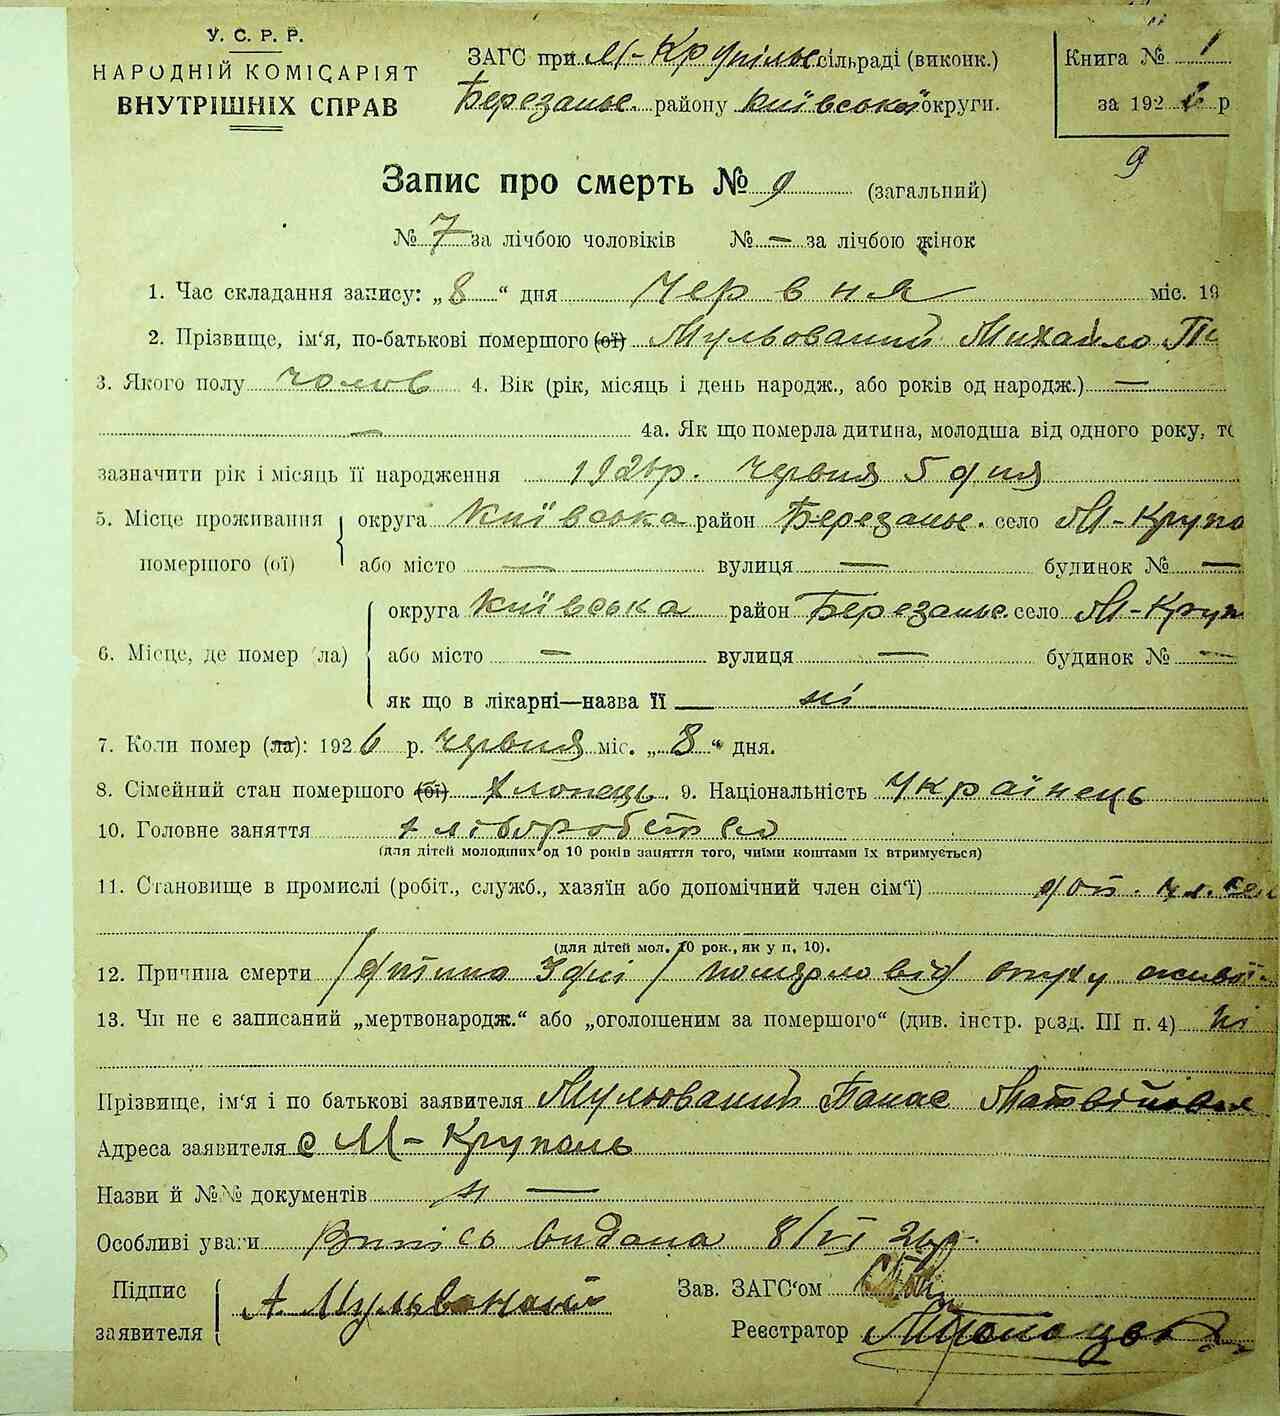 У. С. Р. Р.
НАРОДНІЙ КОМІСАРІЯТ
ВНУТРІШНІХ СПРАВ
ЗАГС при М-Крупільс сільраді (виконк.)
Березансь. району Київської округи.
Книга № 1
за 192 р
9
Запис про смерть № 9 (загальний)
№ 7 за лічбою чоловіків № — за лічбою жінок
1. Час складання запису: „8“ дня Червня міс. 19
2. Прізвище, ім‘я, по-батькові помершого (ої) Мульований Михайло П
3. Якого полу чолов 4. Вік (рік, місяць і день народж., або років од народж.) —
— 4а. Як що померла дитина, молодша від одного року, то
зазначити рік і місяць її народження 1926р. червня 5 дня
5. Місце проживання помершого (ої) округа Київська район Березансь. село М-Крупо
або місто — вулиця — будинок № —
6. Місце, де помер (ла) округа Київська район Березансь. село М-Круп
або місто — вулиця — будинок № —
як що в лікарні—назва її ні
7. Коли помер (ла): 1926 р. червня міс. „8“ дня.
8. Сімейний стан помершого (ої) хлопець. 9. Національність Українець
10. Головне заняття хліборобство
(для дітей молодших од 10 років заняття того, чиїми коштами їх втримується)
11. Становище в промислі (робіт., служб., хазяїн або допомічний член сім‘ї) доп. чл. сем
(для дітей мол. 10 рок., як у п, 10).
12. Причина смерти /дитина 3 дні/ померло від
13. Чи не є записаний „мертвонародж.“ або „оголошеним за помершого“ (див. інстр. розд. III п. 4) ні
Прізвище, ім‘я і по батькові заявителя Мульований Панас Матвійович
Адреса заявителя с М-Круполь
Назви й №№ документів —
Особливі уваги Випись видана 8/VI 26р.
Підпис заявителя А. Мульований
Зав. ЗАГС‘ом
Реєстратор